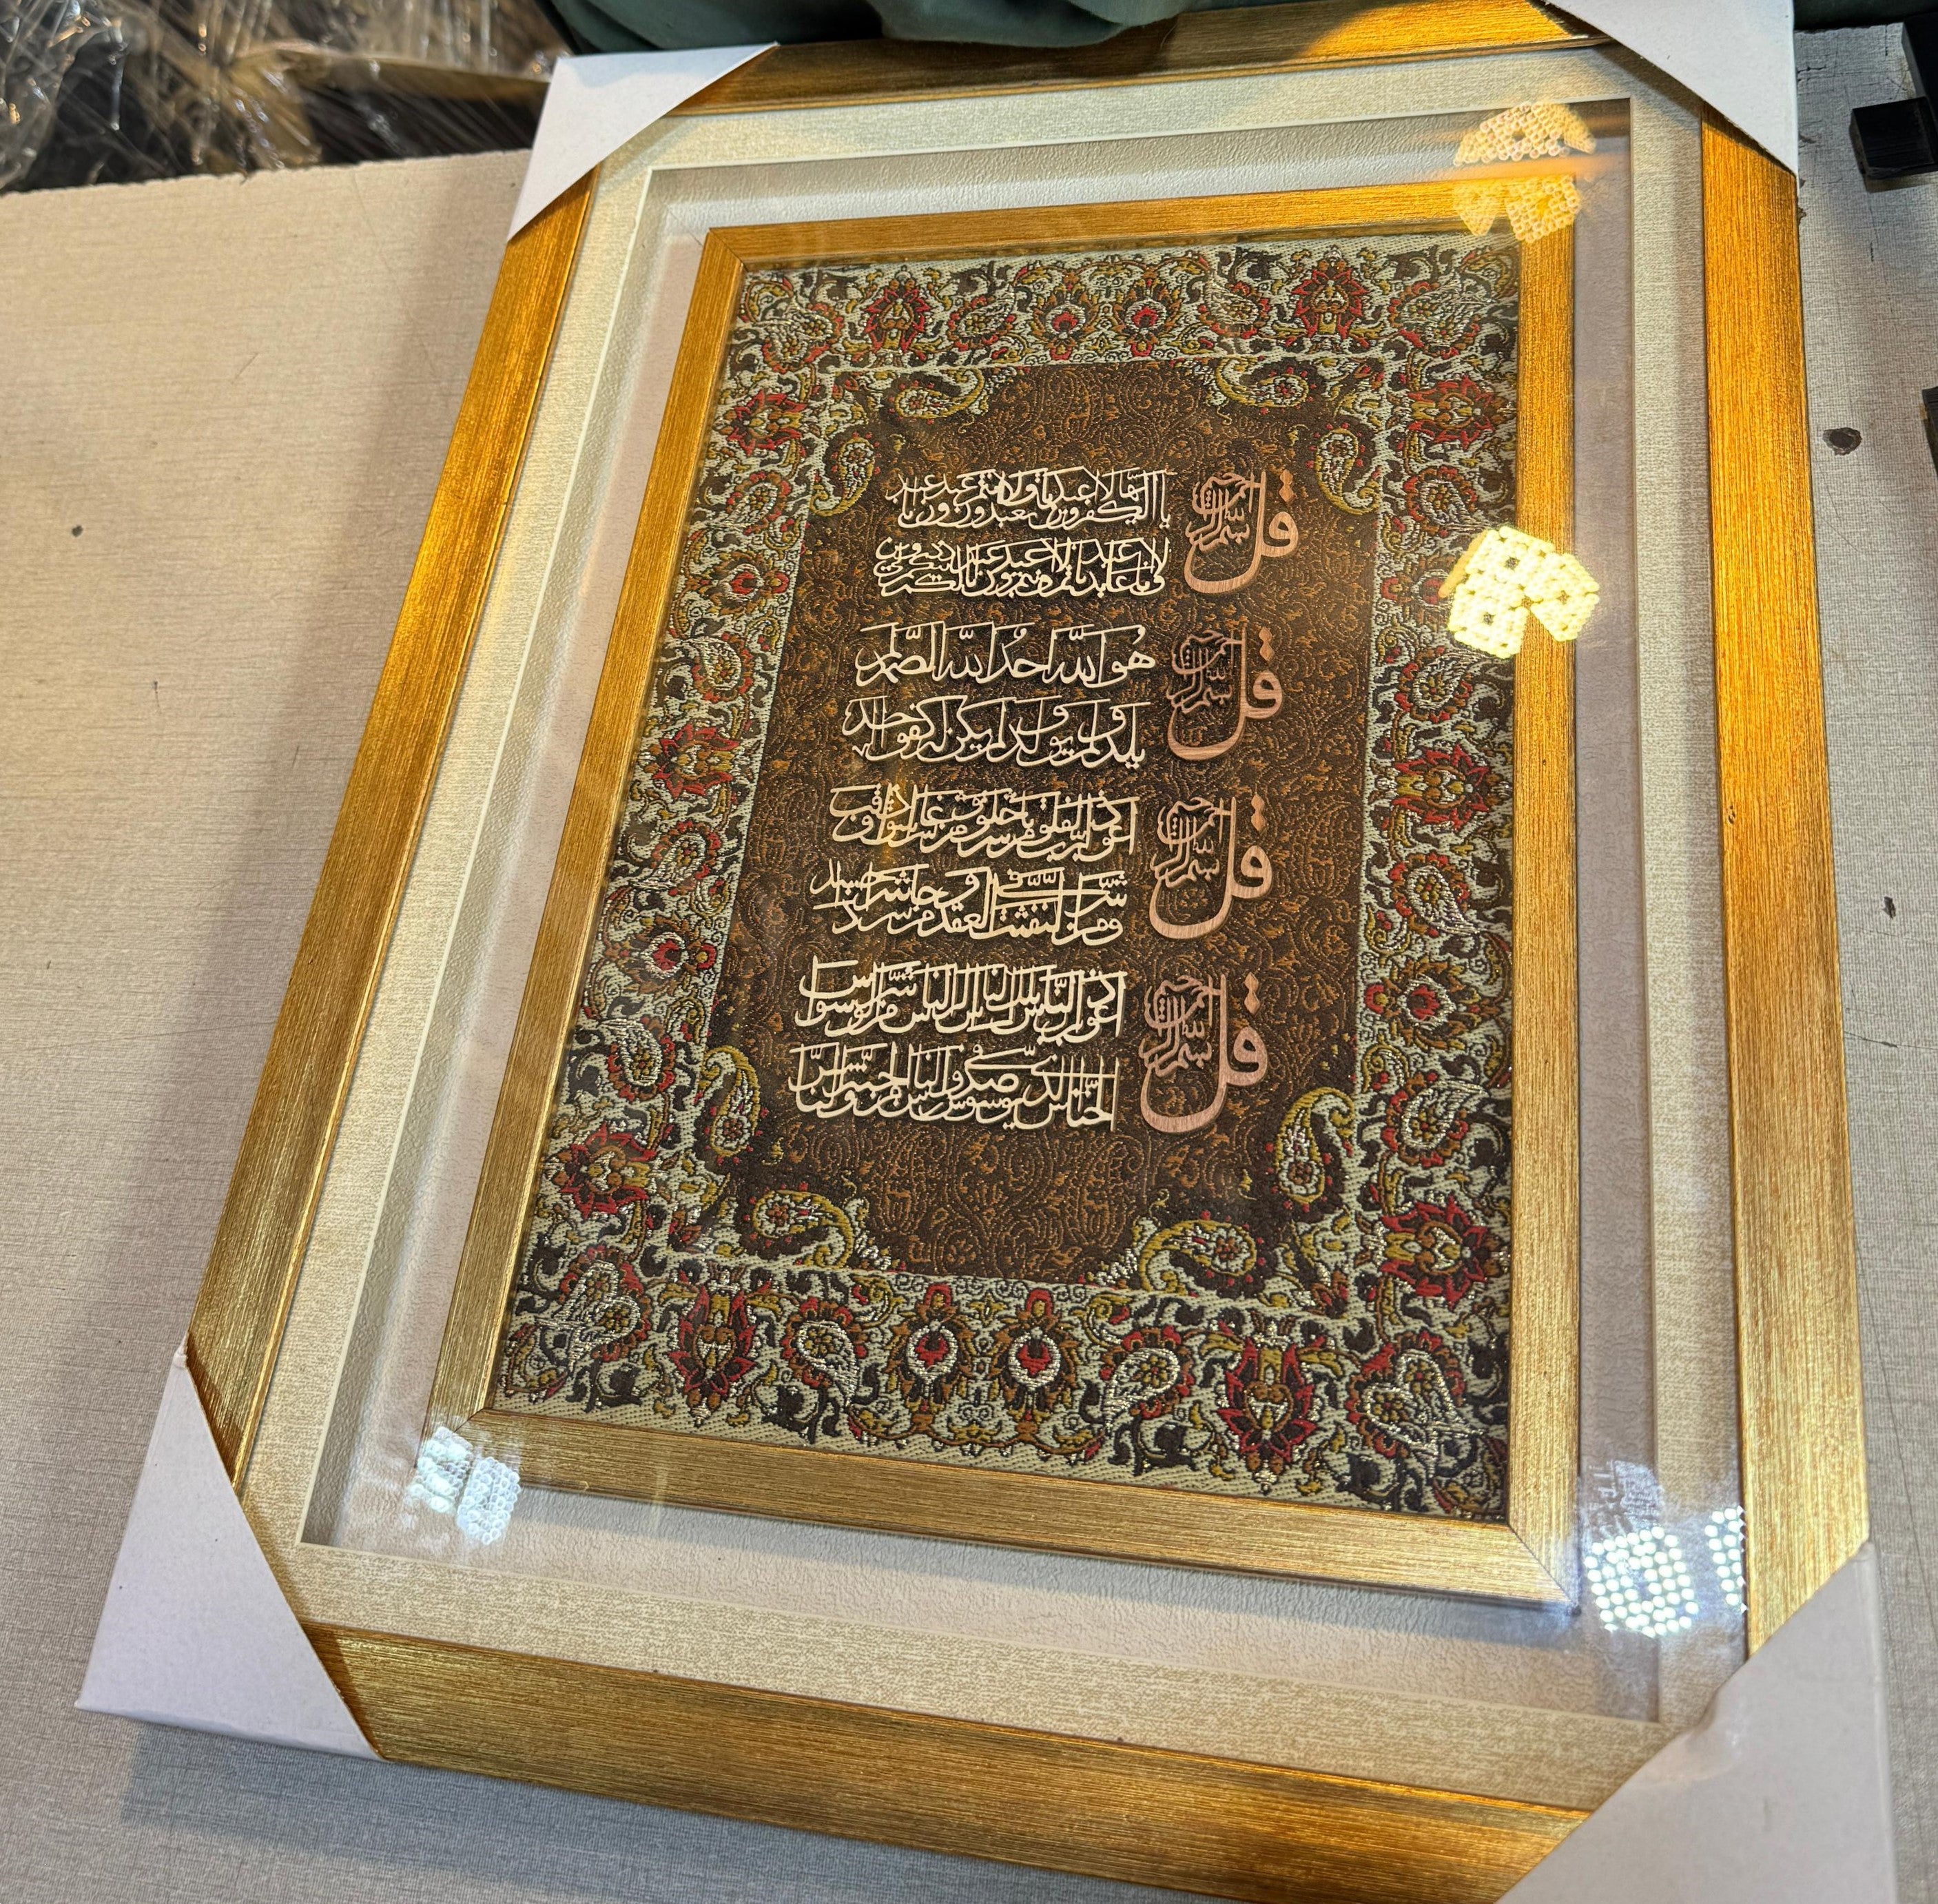 قل بسم الله الرحمن الرحيم
يا ايها الكفرون لا اعبد ما تعبدون ولا انتم عبدون ما اعبد
ولا انا عابد ما عبدتم ولا انتم عبدون ما اعبد لكم دينكم ولي دين
قل بسم الله الرحمن الرحيم
هو الله احد الله الصمد لم
يلد ولم يولد ولم يكن له كفوا احد
قل بسم الله الرحمن الرحيم
اعوذ برب الفلق من شر ما خلق ومن شر غاسق اذا وقب
ومن شر النفثت في العقد ومن شر حاسد اذا حسد
قل بسم الله الرحمن الرحيم
اعوذ برب الناس ملك الناس اله الناس من شر الوسواس
الخناس الذي يوسوس في صدور الناس من الجنة والناس